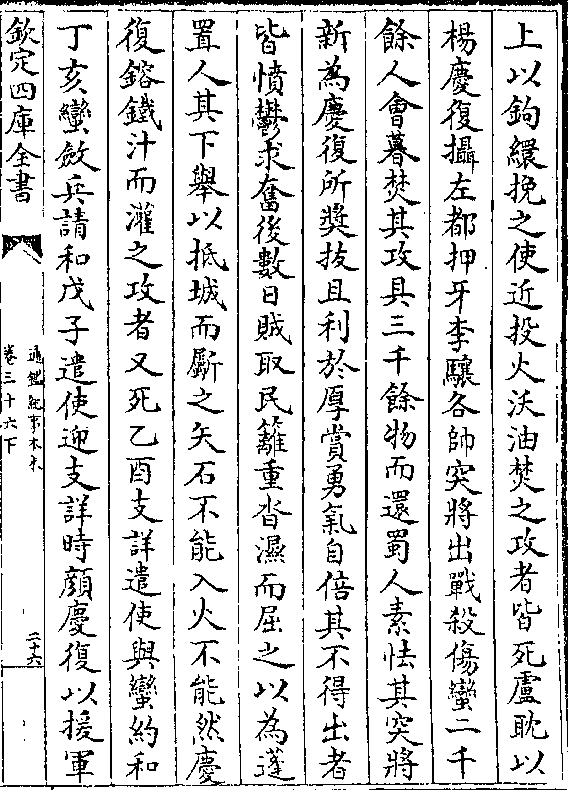 上以鉤繯挽之使近投火沃油焚之攻者皆死盧耽以
楊慶復攝左都押牙李驤各帥突將出戰殺傷蠻二千
餘人會暮焚其攻具三千餘物而還蜀人素怯其突將
新為慶復所奬拔且利於厚賞勇氣自倍其不得出者
皆憤鬱求奮後數日賊取民籬重沓濕而屈之以為蓬
置人其下舉以抵城而斸之矢石不能入火不能然慶
復鎔鐵汁而灌之攻者又死乙酉支詳遣使與蠻約和
丁亥蠻斂兵請和戊子遣使迎支詳時顔慶復以援軍
欽定四庫全書
通鑑紀事本末
卷三十六下
二十六